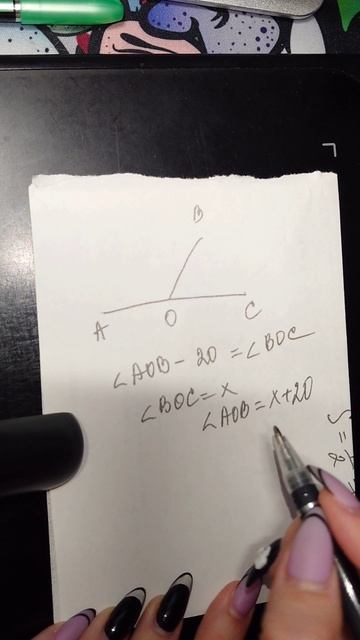 B
A O C
∠AOB - 20 = ∠BOC
∠BOC = x
∠AOB = x+20